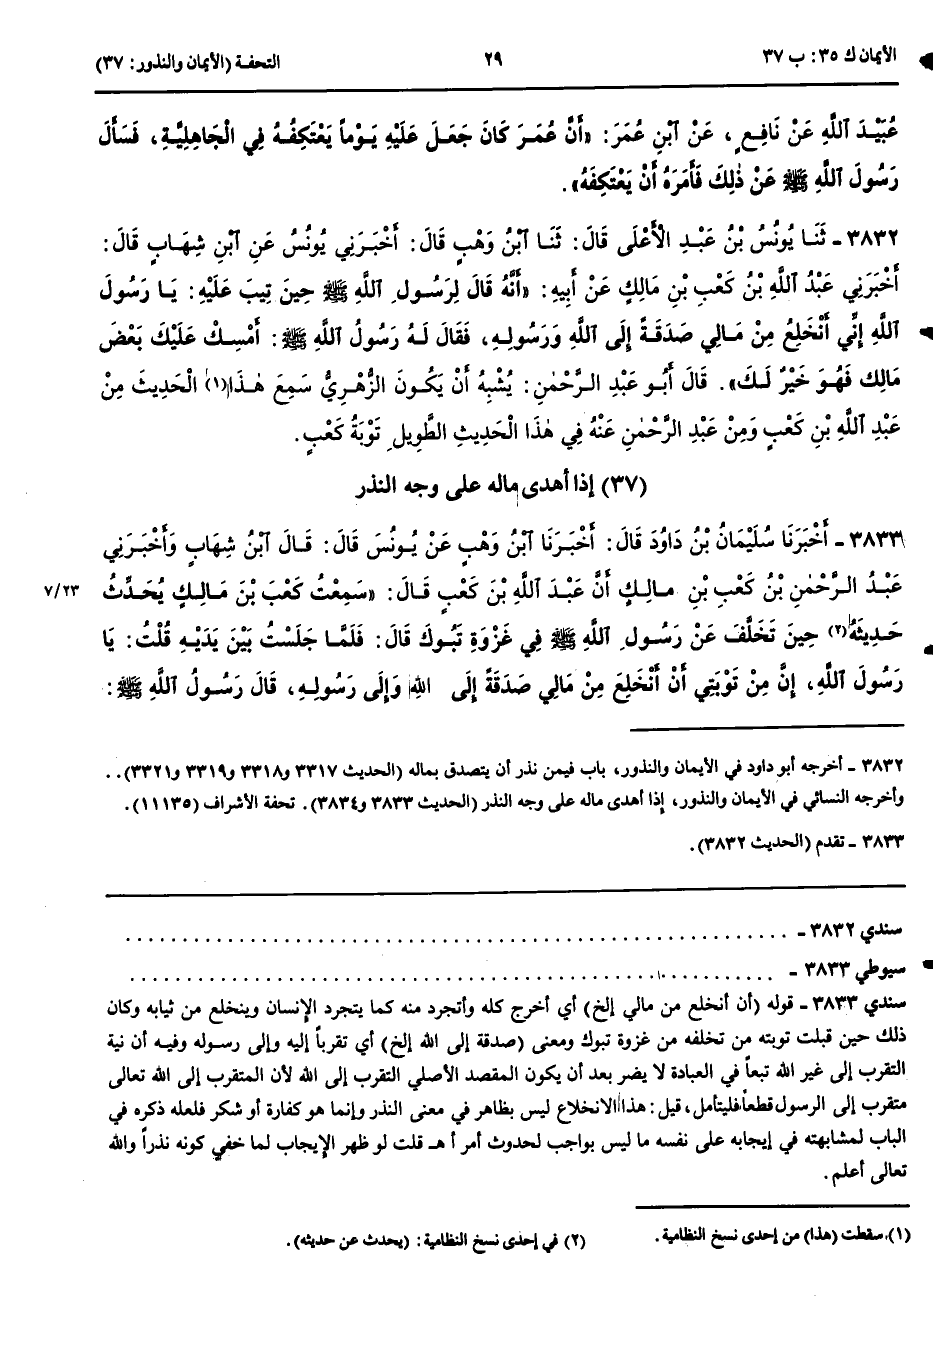 الأيمان ك ٣٥: ب ٣٧
٢٩
التحفة (الأيمان والنذور: ٣٧)
عُبَيْدَ ٱللَّهِ عَنْ نَافِعٍ، عَنْ ٱبْنِ عُمَرَ: «أَنَّ عُمَرَ كَانَ جَعَلَ عَلَيْهِ يَوْماً يَعْتَكِفُهُ فِي الْجَاهِلِيَّةِ، فَسَأَلَ
رَسُولَ ٱللَّهِ ﷺ عَنْ ذٰلِكَ فَأَمَرَهُ أَنْ يَعْتَكِفَهُ».
٣٨٣٢ - ثَنَا يُونُسُ بْنُ عَبْدِ الْأَعْلَى قَالَ: ثَنَا ٱبْنُ وَهْبٍ قَالَ: أَخْبَرَنِي يُونُسُ عَنِ ٱبْنِ شِهَابٍ قَالَ:
أَخْبَرَنِي عَبْدُ ٱللَّهِ بْنُ كَعْبِ بْنِ مَالِكٍ عَنْ أَبِيهِ: «أَنَّهُ قَالَ لِرَسُولِ ٱللَّهِ ﷺ حِينَ تِيبَ عَلَيْهِ: يَا رَسُولَ
ٱللَّهِ إِنِّي أَنْخَلِعُ مِنْ مَالِي صَدَقَةً إِلَى ٱللَّهِ وَرَسُولِهِ، فَقَالَ لَهُ رَسُولُ ٱللَّهِ ﷺ: أَمْسِكْ عَلَيْكَ بَعْضَ
مَالِكَ فَهُوَ خَيْرٌ لَكَ». قَالَ أَبُو عَبْدِ الرَّحْمٰنِ: يُشْبِهُ أَنْ يَكُونَ الزُّهْرِيُّ سَمِعَ هٰذَا(١) الْحَدِيثَ مِنْ
عَبْدِ ٱللَّهِ بْنِ كَعْبٍ وَمِنْ عَبْدِ الرَّحْمٰنِ عَنْهُ فِي هٰذَا الْحَدِيثِ الطَّوِيلِ تَوْبَةُ كَعْبٍ.
(٣٧) إذا أهدى ماله على وجه النذر
٣٨٣٣ - أَخْبَرَنَا سُلَيْمَانُ بْنُ دَاوُدَ قَالَ: أَخْبَرَنَا ٱبْنُ وَهْبٍ عَنْ يُونُسَ قَالَ: قَالَ ٱبْنُ شِهَابٍ وَأَخْبَرَنِي
عَبْدُ الرَّحْمٰنِ بْنُ كَعْبِ بْنِ مَالِكٍ أَنَّ عَبْدَ ٱللَّهِ بْنَ كَعْبٍ قَالَ: «سَمِعْتُ كَعْبَ بْنَ مَالِكٍ يُحَدِّثُ ٧/٢٣
حَدِيثَهُ(٢) حِينَ تَخَلَّفَ عَنْ رَسُولِ ٱللَّهِ ﷺ فِي غَزْوَةِ تَبُوكَ قَالَ: فَلَمَّا جَلَسْتُ بَيْنَ يَدَيْهِ قُلْتُ: يَا
رَسُولَ ٱللَّهِ، إِنَّ مِنْ تَوْبَتِي أَنْ أَنْخَلِعَ مِنْ مَالِي صَدَقَةً إِلَى اللَّهِ وَإِلَى رَسُولِهِ، قَالَ رَسُولُ ٱللَّهِ ﷺ:
٣٨٣٢ - أخرجه أبو داود في الأيمان والنذور، باب فيمن نذر أن يتصدق بماله (الحديث ٣٣١٧ و٣٣١٨ و٣٣١٩ و٣٣٢١)..
وأخرجه النسائي في الأيمان والنذور، إذا أهدى ماله على وجه النذر (الحديث ٣٨٣٣ و٣٨٣٤). تحفة الأشراف (١١١٣٥).
٣٨٣٣ - تقدم (الحديث ٣٨٣٢).
سندي ٣٨٣٢ - ..........................................................
سيوطي ٣٨٣٣ - ..........................................................
سندي ٣٨٣٣ - قوله (أن أنخلع من مالي إلخ) أي أخرج كله وأتجرد منه كما يتجرد الإنسان وينخلع من ثيابه وكان
ذلك حين قبلت توبته من تخلفه من غزوة تبوك ومعنى (صدقة إلى الله إلخ) أي تقرباً إليه وإلى رسوله وفيه أن نية
التقرب إلى غير الله تبعاً في العبادة لا يضر بعد أن يكون المقصد الأصلي التقرب إلى الله لأن المتقرب إلى الله تعالى
متقرب إلى الرسول قطعاً فليتأمل، قيل: هذا الانخلاع ليس بظاهر في معنى النذر وإنما هو كفارة أو شكر فلعله ذكره في
الباب لمشابهته في إيجابه على نفسه ما ليس بواجب لحدوث أمر أ هـ قلت لو ظهر الإيجاب لما خفي كونه نذراً والله
تعالى أعلم.
(١) سقطت (هذا) من إحدى نسخ النظامية.
(٢) في إحدى نسخ النظامية: (يحدث عن حديثه).